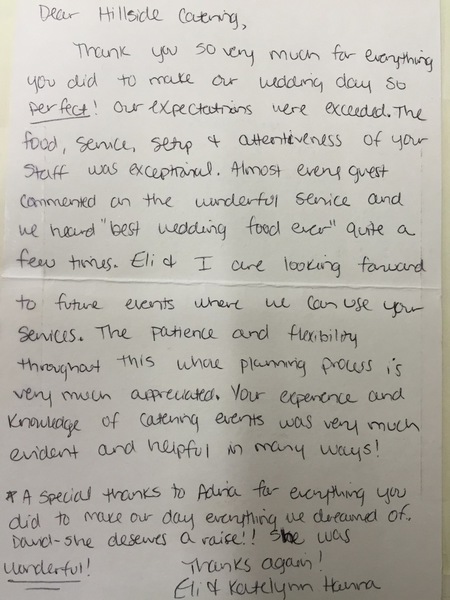 Dear Hillside Catering,
Thank you so very much for everything
you did to make our wedding day so
perfect! Our expectations were exceeded. The
food, service, setup & attentiveness of your
staff was exceptional. Almost every guest
commented on the wonderful service and
we heard "best wedding food ever" quite a
few times. Eli & I are looking forward
to future events where we can use your
services. The patience and flexibility
throughout this whole planning process is
very much appreciated. Your experience and
knowledge of catering events was very much
evident and helpful in many ways!
*A special thanks to Adria for everything you
did to make our day everything we dreamed of.
David-she deserves a raise!! She was
wonderful!
Thanks again!
Eli & Katelynn Hanna